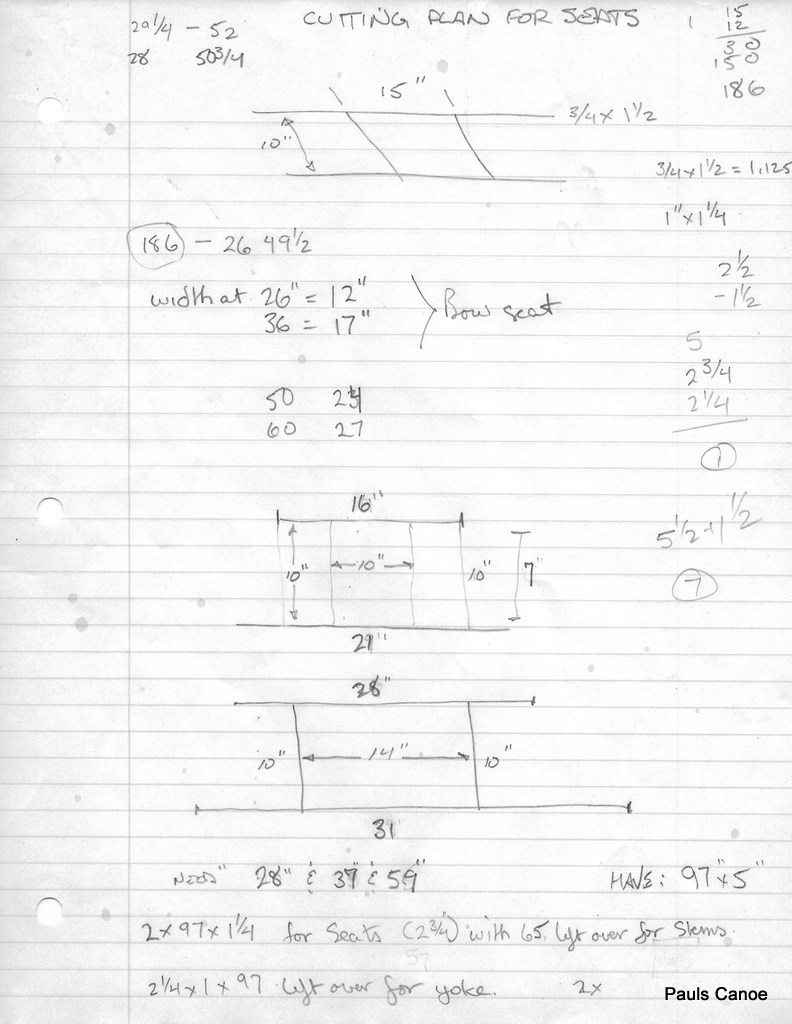 CUTTING PLAN FOR SEATS
29 1/4 - 52
28 50 3/4
1 15
12
30
150
186
15"
3/4 x 1 1/2
10"
3/4 x 1 1/2 = 1.125
1" x 1 1/4
186 - 26 49 1/2
2 1/2
- 1 1/2
width at 26" = 12"
36 = 17"
Bow seat
5
2 3/4
2 1/4
1
50
60 27
5 1/2 + 1 1/2
7
16"
10" 10" 10" 7"
21"
28"
10" 14" 10"
31
NEED 28" & & 59"
HAVE: 97" x 5"
2 x 97 x 1 1/4 for Seats (2 3/4) with 65 left over for Stems.
57
2 1/4 x 1 x 97 left over for yoke. 2x
Pauls Canoe